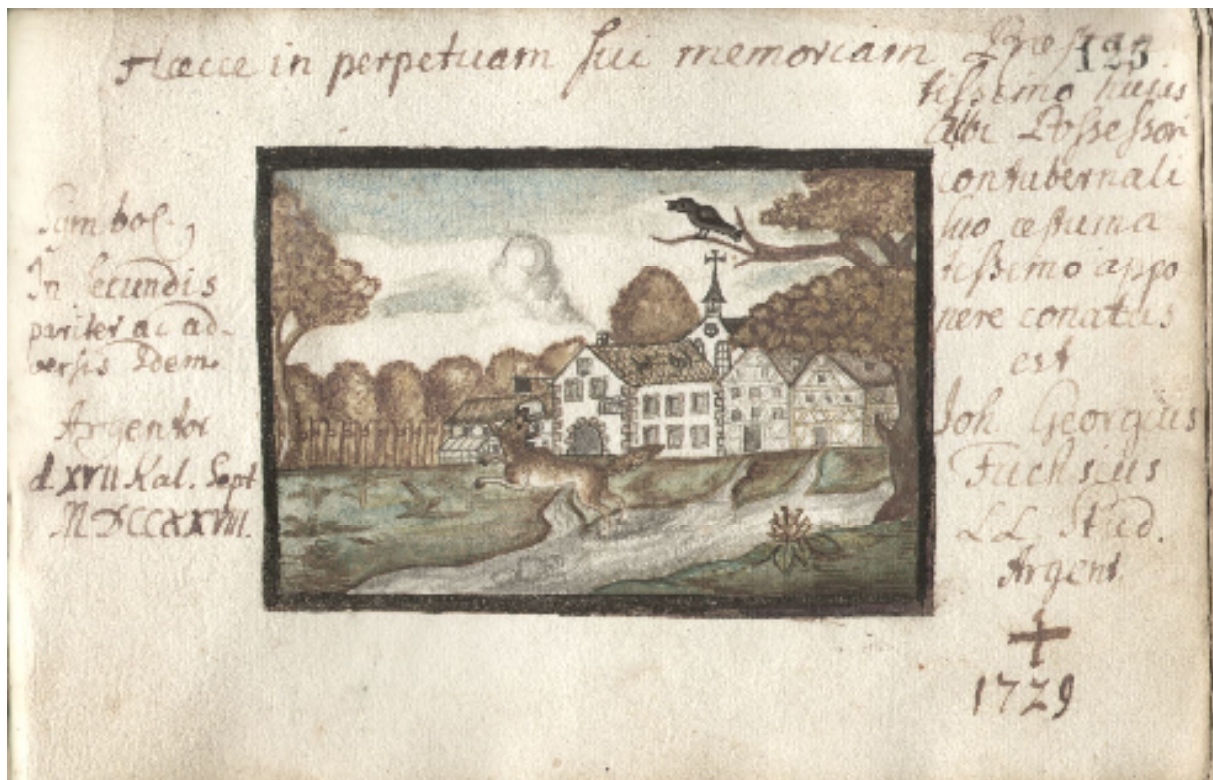 123
Haecce in perpetuam sui memoriam Praestan
tissimo huius
Albi Possessori
contubernali
suo aestuma
tissimo appo
nere conatus
est
Joh. Georgius
Fuchsius
LL. Stud.
Argent.
+
1729
Symbol.
In secundis
pariter ac ad-
versis Idem.
Argentor
d. XVII Kal. Sept
MDCCXXVIII.